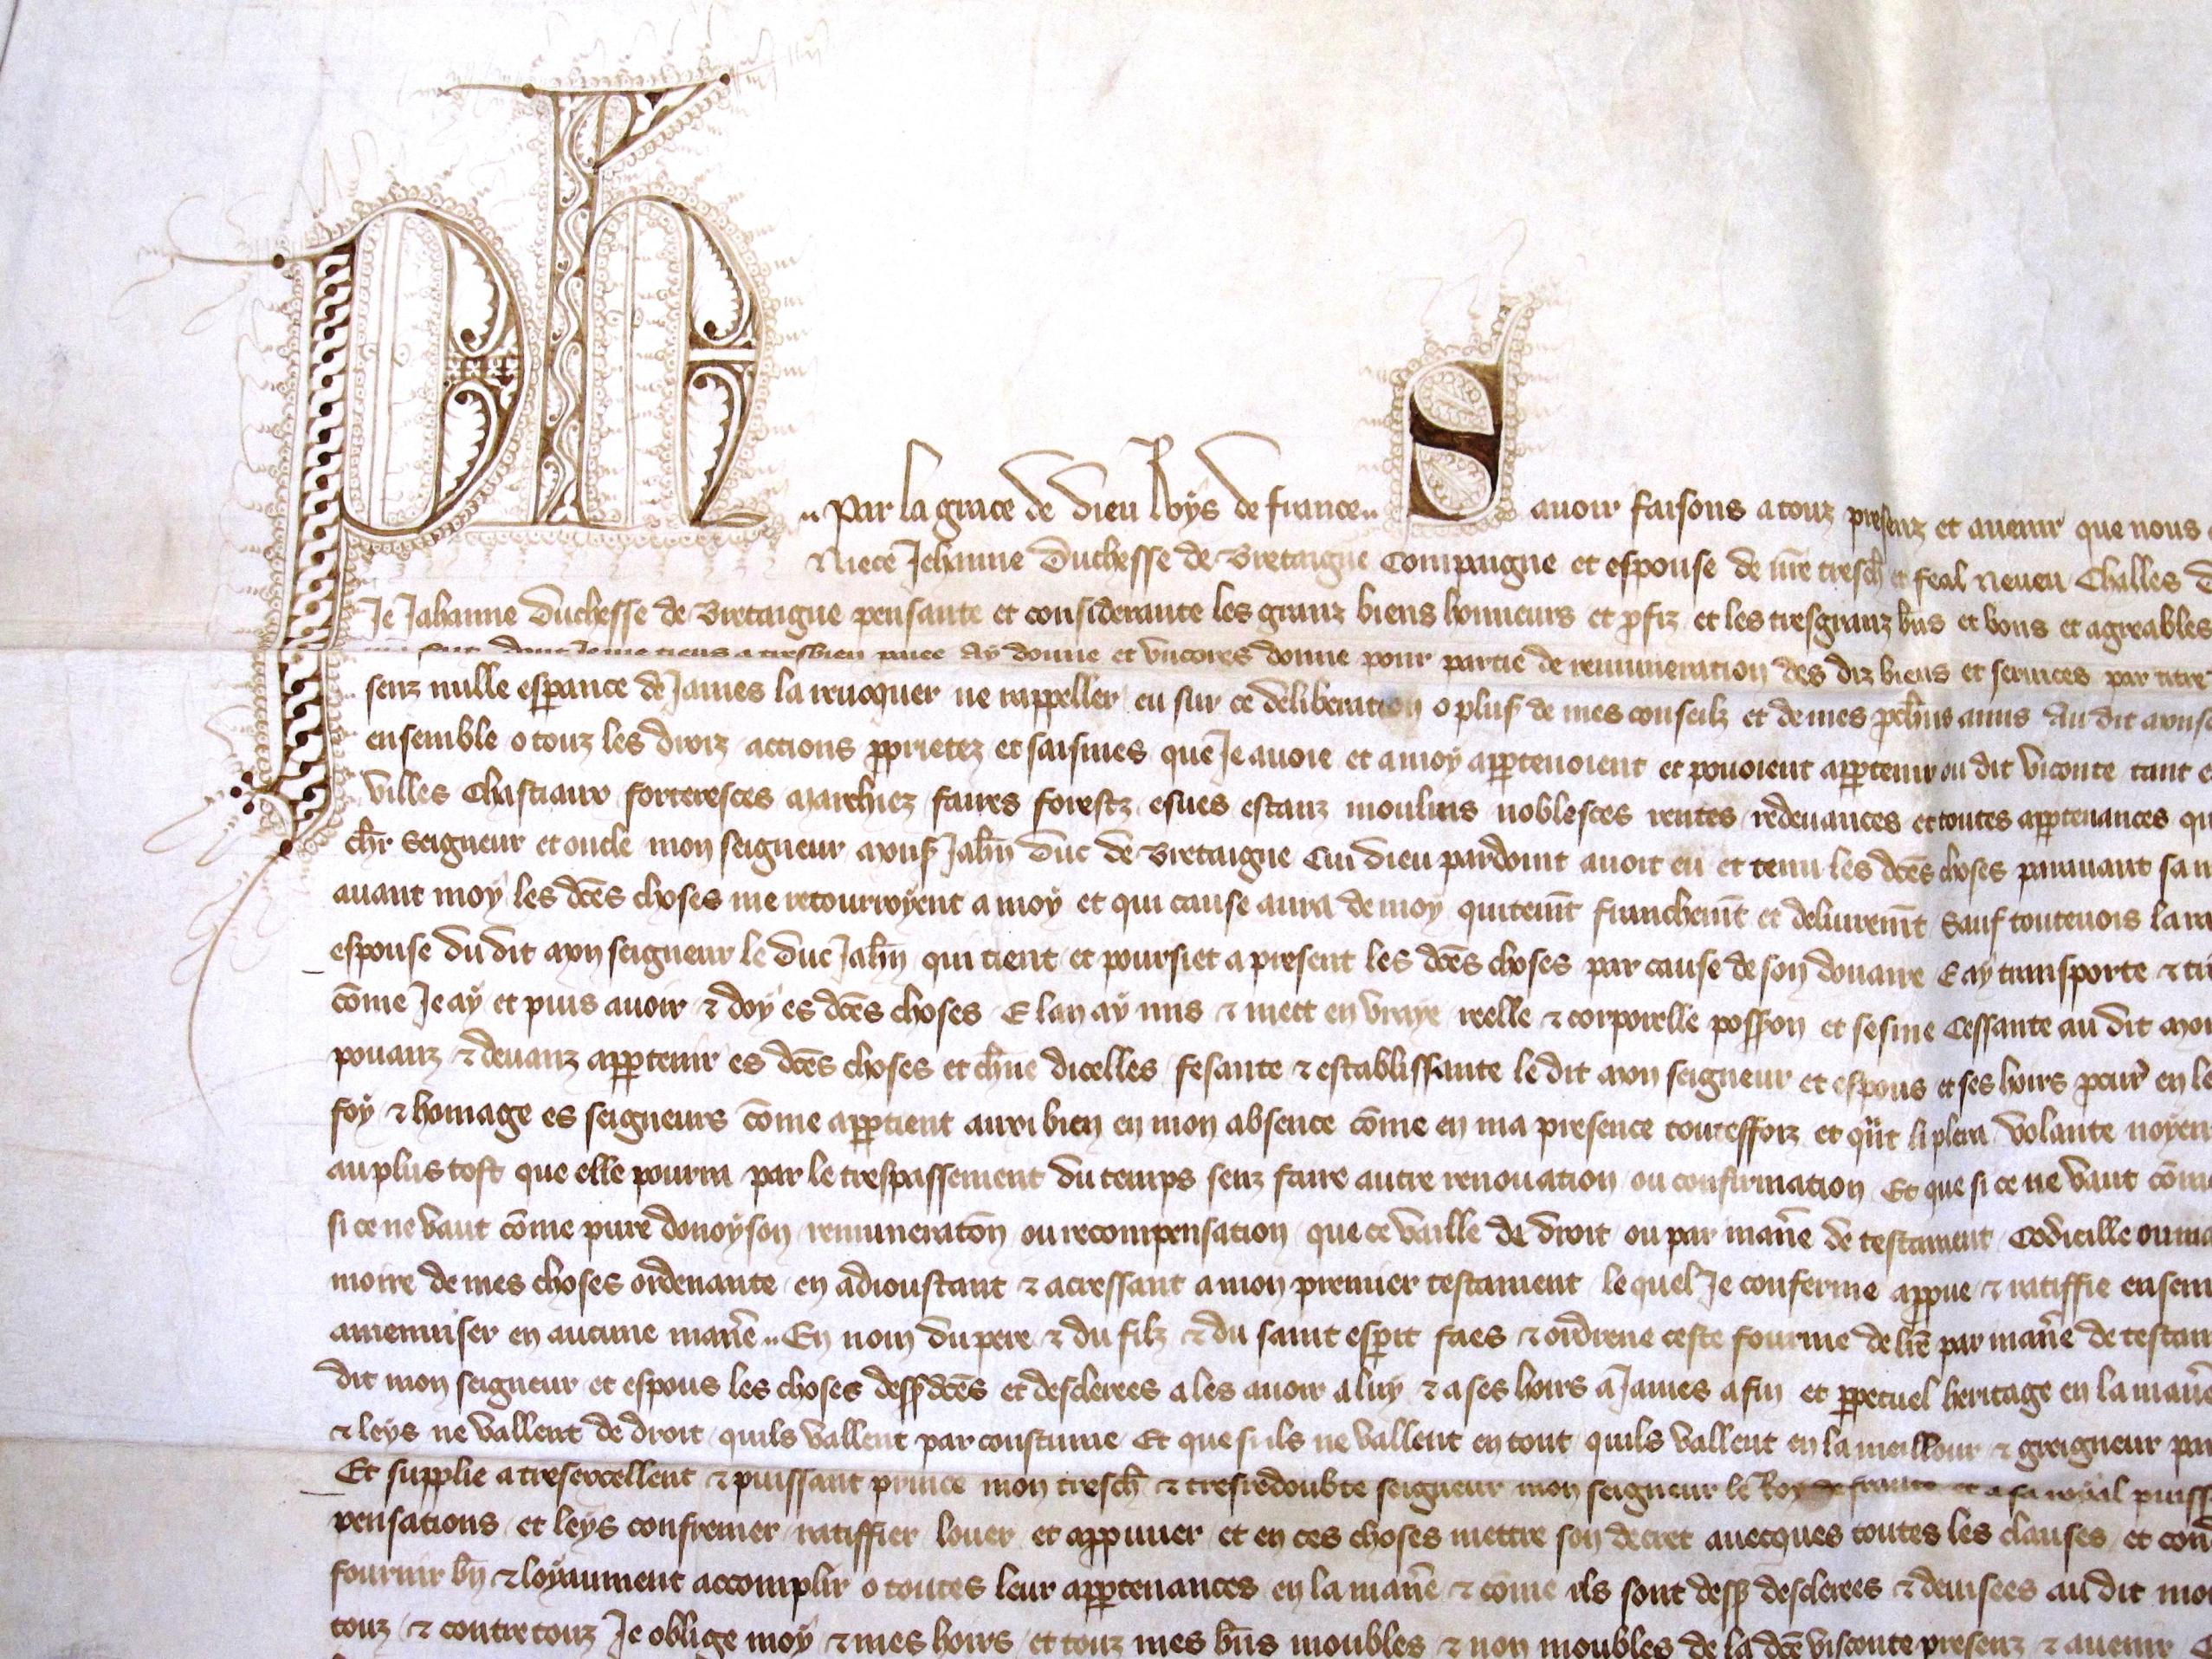 Ph par la grace de dieu Roys de france Savoir faisons a touz presenz et avenir que nous
Niece Jehanne Duchesse de Bretaigne Compaigne et espouse de nre tresch et feal neveu Challes
Je Jahanne Duchesse de Bretaigne pensante et considerante les granz biens honneurs et pfiz et les tresgranz bns et bons et agreables
dont Je me tiens a tresbien paiee Ay donne et uncores donne pour partie de remuneration des diz biens et services par titre
senz nulle espance de James la revoquer ne rappeller eu sur ce deliberation o plus de mes conseilz et de mes pchns amis Au dit
ensemble o touz les droiz actions pprietez et saisines que Je avoie et a moy apptenoient et povoient apptenir ou dit viconte tant
villes Chastiaux forteresces Marchiez faires forestz esves estanz moulins noblesces rentes redevances et toutes apptenances
chr Seigneur et oncle mon seigneur monss Jahn Duc de Bretaigne Cui dieu pardoint avoit eu et tenu les dces choses paravant sa
avant moy les dces choses me retourroyent a moy et qui cause aura de moy quitemt franchemt et delivremt Sauf toutevois la
espouse du dit mon seigneur le duc Jahn qui tient et poursiet a present les dces choses par cause de son douaire E ay transporte &
come Je ay et puis avoir & doy es dces choses E lan ay mis & mett en vraye reelle & corporelle possson et sesine Cessante au dit
povanz & devanz apptenir es dces choses et chune dicelles fesante & establissante le dit mon seigneur et espous et ses hoirs pcur en
foy & homage es seigneurs come apptient auxi bien en mon absence come en ma presence toutesfforz et qnt li plera volante
au plus tost que elle pourra par le trespassement du temps senz faire autre renovation ou confirmation Et que si ce ne vaut
si ce ne vaut come pure donoyson remuneraton ou recompensation que ce vaille de droit ou par mane de testament Codicille ou
moire de mes choses ordenante en adioustant & acressant a mon premier testament le quel Je conferme appue & ratiffie
amenuiser en aucune mane En nom du pere & du filz & du saint espit faes & ordrene ceste fourme de lre par mane de
dit mon seigneur et espous les choses dessdces et desclerees a les avoir a luy & a ses hoirs a James a fin et ppetuel heritage en la
& leys ne vallent de droit quils vallent par coustume Et que sils ne vallent en tout quils vallent en la meillour & greigneur
Et supplie a tresexcellent & puissant prince mon tresch & tresredoubte seigneur mon seigneur le Roy de france et a sa royal
pensations et leys confremer ratiffier louer et appuver et en ces choses mettre son decret avecques toutes les clauses et
fournir bn & loyaument accomplir o toutes leur apptenances en la mane & come ils sont dessp desclerees & devisees au dit
touz & contre touz Je oblige moy & mes hoirs et touz mes bns moubles & non moubles de la dce visconte presenz & avenir